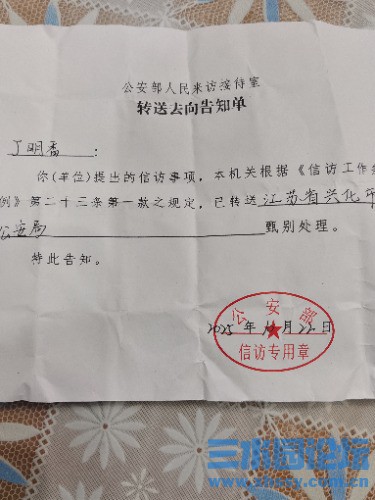 公安部人民来访接待室
转送去向告知单
丁明香 :
你(单位)提出的信访事项，本机关根据《信访工作条
例》第二十三条第一款之规定，已转送 江苏省兴化市
公安局 甄别处理。
特此告知。
公安部
2025 年 月 22 日
信访专用章
三水园论坛